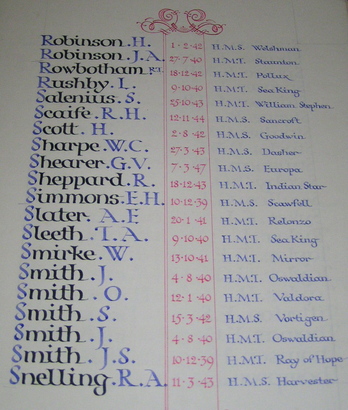 Robinson. H. 1·2·42 H.M.S. Welshman
Robinson. J.A. 27·7·40 H.M.T. Staunton
Rowbotham. R.T. 18·12·42 H.M.T. Pollux
Rushby. L. 9·10·40 H.M.T. Sea King
Salenius. S. 25·10·43 H.M.T. William Stephen.
Scaife. R.H. 12·11·44 H.M.S. Sancroft
Scott. H. 2·8·42 H.M.S. Goodwin
Sharpe. W.C. 27·3·43 H.M.S. Dasher
Shearer. G.V. 7·3·47 H.M.S. Europa
Sheppard. R. 18·12·43 H.M.T. Indian Star
Simmons. E.H. 10·12·39 H.M.S. Seawfell
Slater. A.E 20·1·41 H.M.T. Relonzo
Sleeth. T.A. 9·10·40 H.M.T. Sea King
Smirke. W. 13·10·41 H.M.T. Mirror
Smith. J. 4·8·40 H.M.T. Oswaldian
Smith. O. 12·1·40 H.M.T. Valdora
Smith. S. 15·3·42 H.M.S. Vortigen
Smith. J. 4·8·40 H.M.T. Oswaldian
Smith. J.S. 10·12·39 H.M.T. Ray of Hope
Snelling. R.A. 11·3·43 H.M.S. Harvester